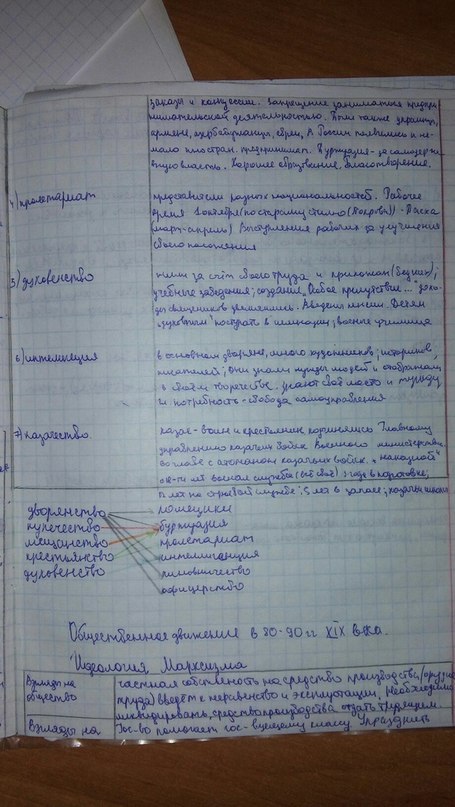 заказы и концессии. Запрещение заниматься предпри
нимательской деятельностью. Были также украинцы,
армяне, азербайджанцы, евреи, А России появились и не-
мало иностран. предпринимат. Буржуазия - за самодержав
ную власть. Хорошее образование. Благотворение.
4) пролетариат
представители разных национальностей. Рабочее
время 1 октября (по старому стилю (Покрова)) - Пасха
(март-апрель) Выступления рабочих за улучшения
своего положения
5) духовенство
жили за счёт своего труда и прихожан (бедных);
учебные заведения; создание "Особое присутствие..."
священников уменьшились. Введены пенсии. Детям
духовным поступать в гимназии, военные училища
6) интеллигенция
в основном дворяне, много художников, историков,
писателей; Они знали нужды людей и отображали
в своём творчестве. знают своё место и
и потребность - свобода самоуправления
7) казачество
казак - воин и крестьянин подчинялись Главному
управлению казачьих войск Военного министерства.
во главе с атаманом казачьих войск. "наказной"
лет военной службы (всё своё) 3 года в подготовке;
лет на строевой службе; 5 лет в запасе; казачьи школы
дворянство помещики
купечество буржуазия
мещанство пролетариат
крестьянство интеллигенция
духовенство чиновничество
офицерство
Общественное движение в 80-90 гг XIX века.
Идеология Марксизма
Взгляды на
общество
частная собственность на средство производства (орудия
труда) введёт к неравенство и эксплуатации. Необходимо
ликвидировать, средство производства отдать трудящем.
Взгляды на
Гос-во помогает гос-вующему классу Упразднить